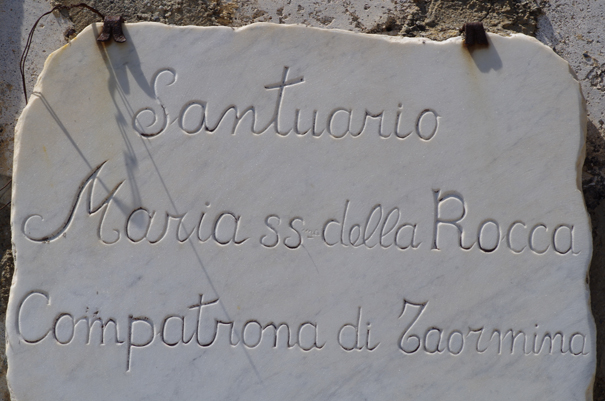 Santuario
Maria ss.ma della Rocca
Compatrona di Taormina